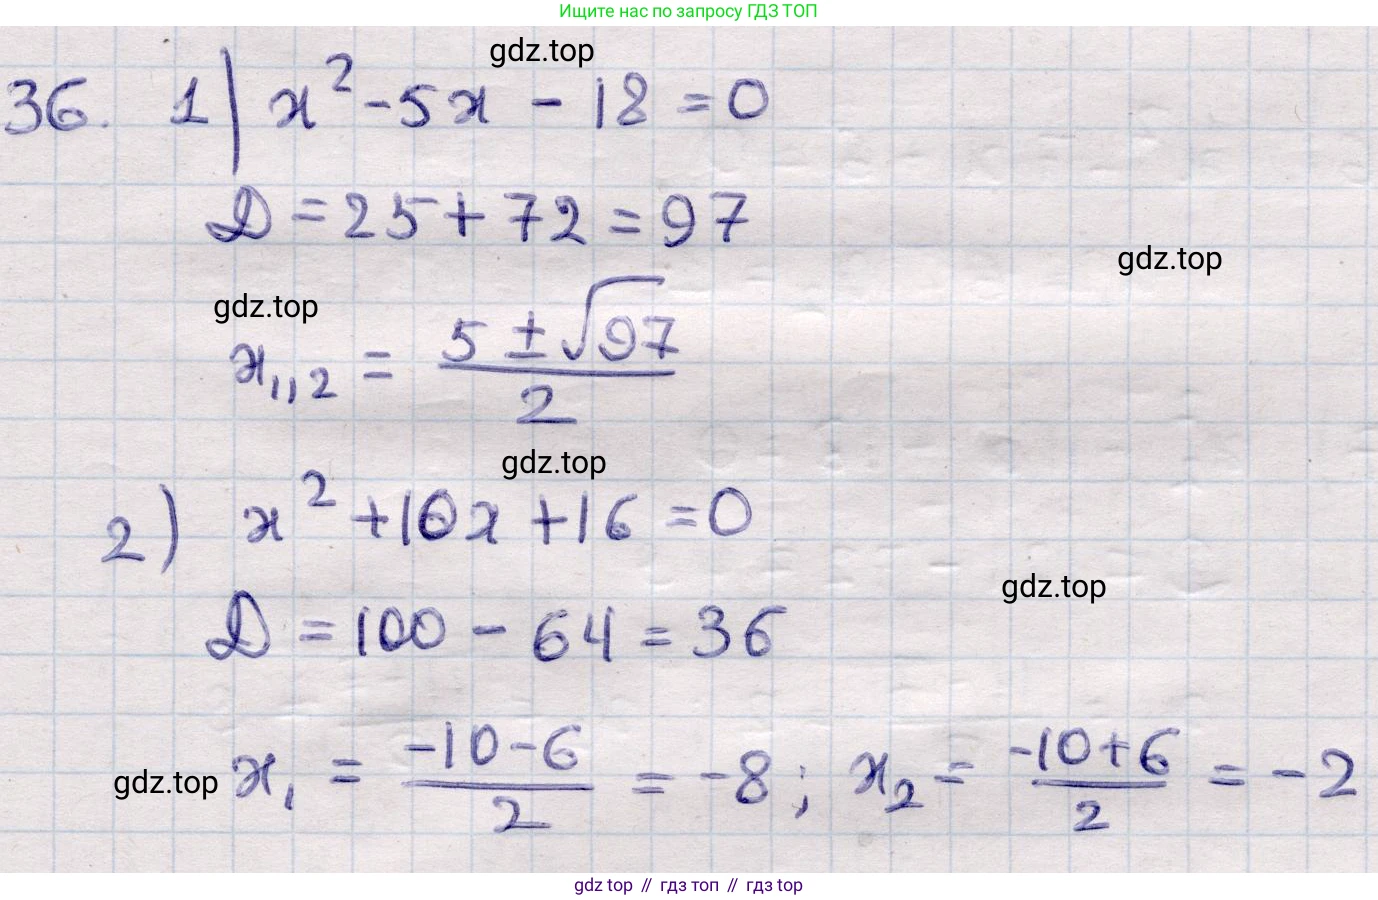 Ищите нас по запросу ГДЗ ТОП
gdz.top
36. 1) x² - 5x - 18 = 0
D = 25 + 72 = 97
gdz.top
gdz.top
x₁,₂ = (5 ± √97) / 2
gdz.top
2) x² + 10x + 16 = 0
gdz.top
D = 100 - 64 = 36
gdz.top x₁ = (-10 - 6) / 2 = -8; x₂ = (-10 + 6) / 2 = -2
gdz top // гдз топ // gdz top